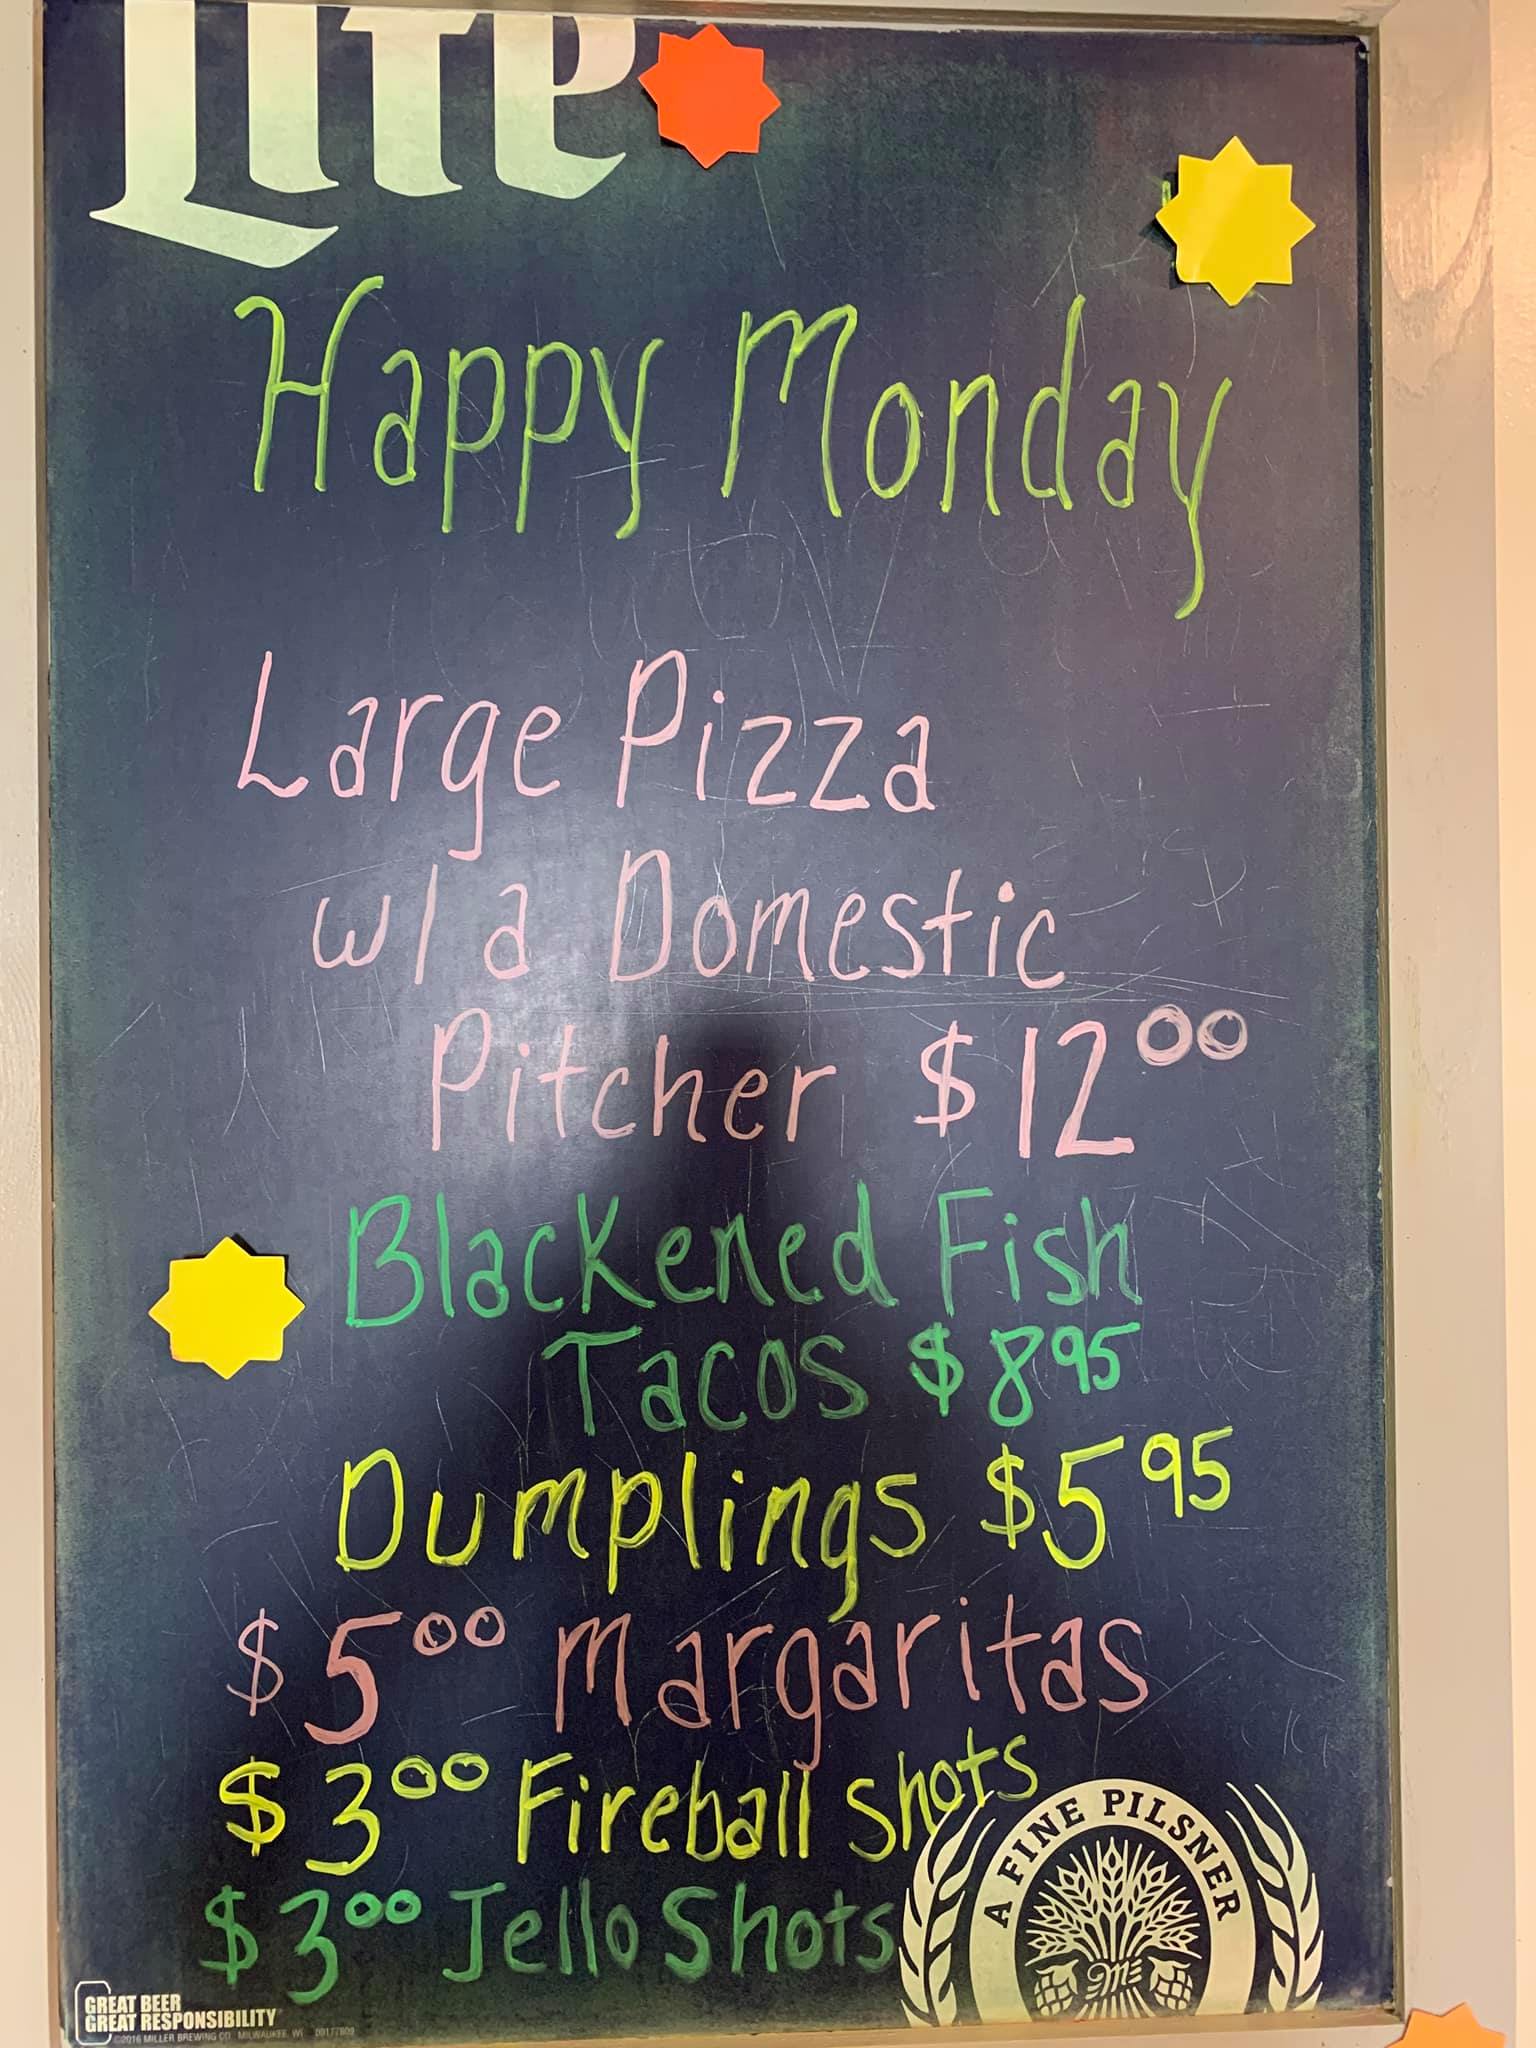 Lite
Happy Monday
Large Pizza
w/ a Domestic
Pitcher $12⁰⁰
Blackened Fish
Tacos $8⁹⁵
Dumplings $5⁹⁵
$5⁰⁰ Margaritas
$3⁰⁰ Fireball Shots
$3⁰⁰ Jello Shots
A FINE PILSNER
M
GREAT BEER
GREAT RESPONSIBILITY
©2016 MILLER BREWING CO. MILWAUKEE, WI